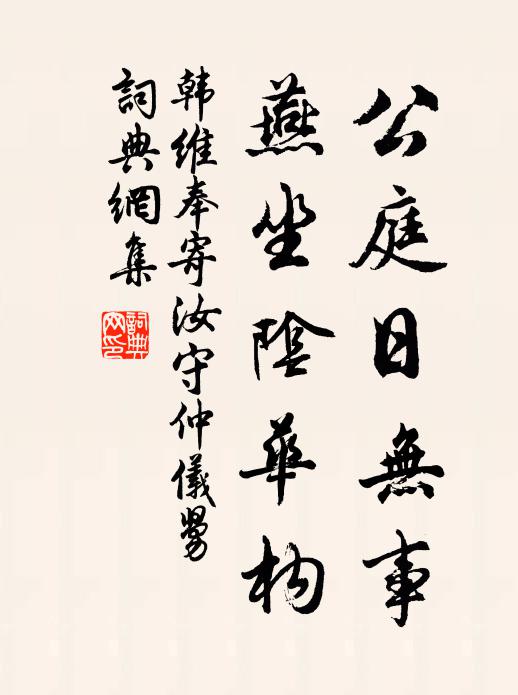 公庭日無事
燕坐陰華构
韩維奉寄汝守仲儀舅
詞典網集